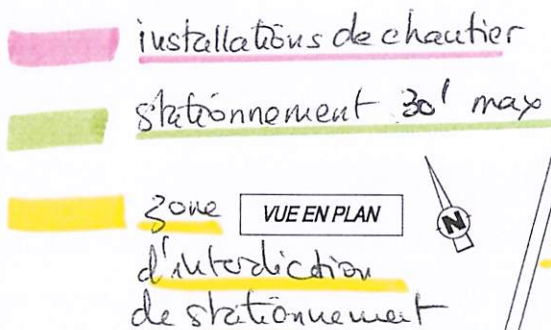 installations de chantier
stationnement 30' max
zone
VUE EN PLAN
N
d'interdiction
de stationnement